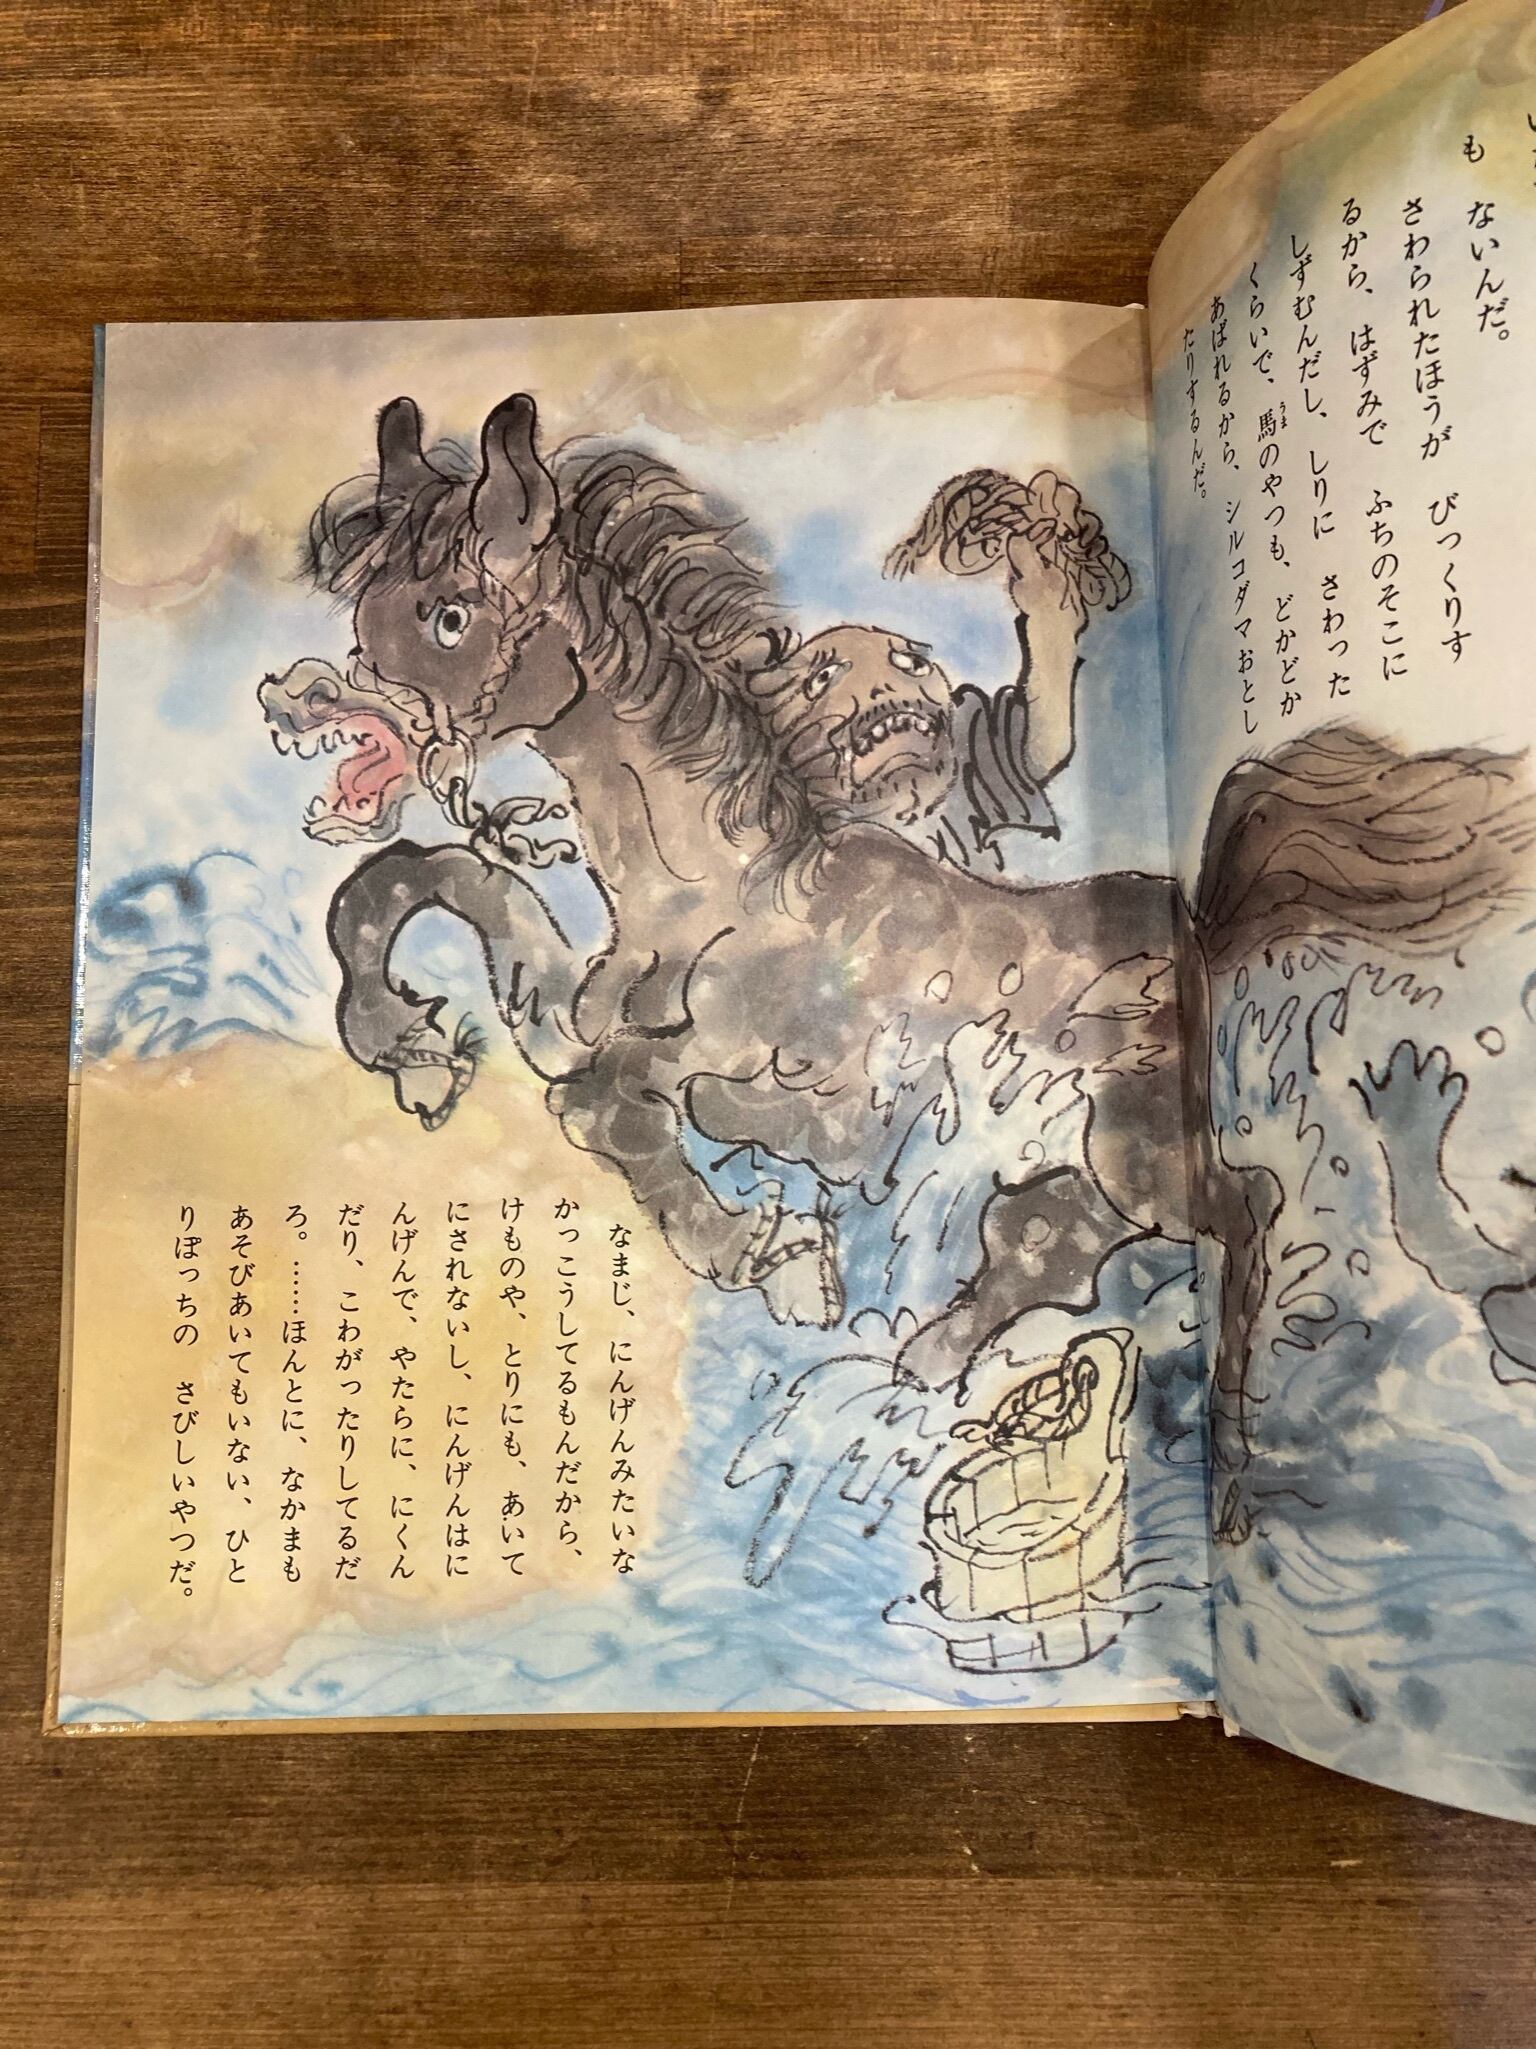 も　ないんだ。
さわられたほうが　びっくりす
るから、はずみで　ふちのそこに
しずむんだし、しりに　さわった
くらいで、馬のやつも、どかどか
うま
あばれるから、シルコダマおとし
たりするんだ。
なまじ、にんげんみたいな
かっこうしてるもんだから、
けものや、とりにも、あいて
にされないし、にんげんはに
んげんで、やたらに、にくん
だり、こわがったりしてるだ
ろ。……ほんとに、なかまも
あそびあいてもいない、ひと
りぽっちの　さびしいやつだ。